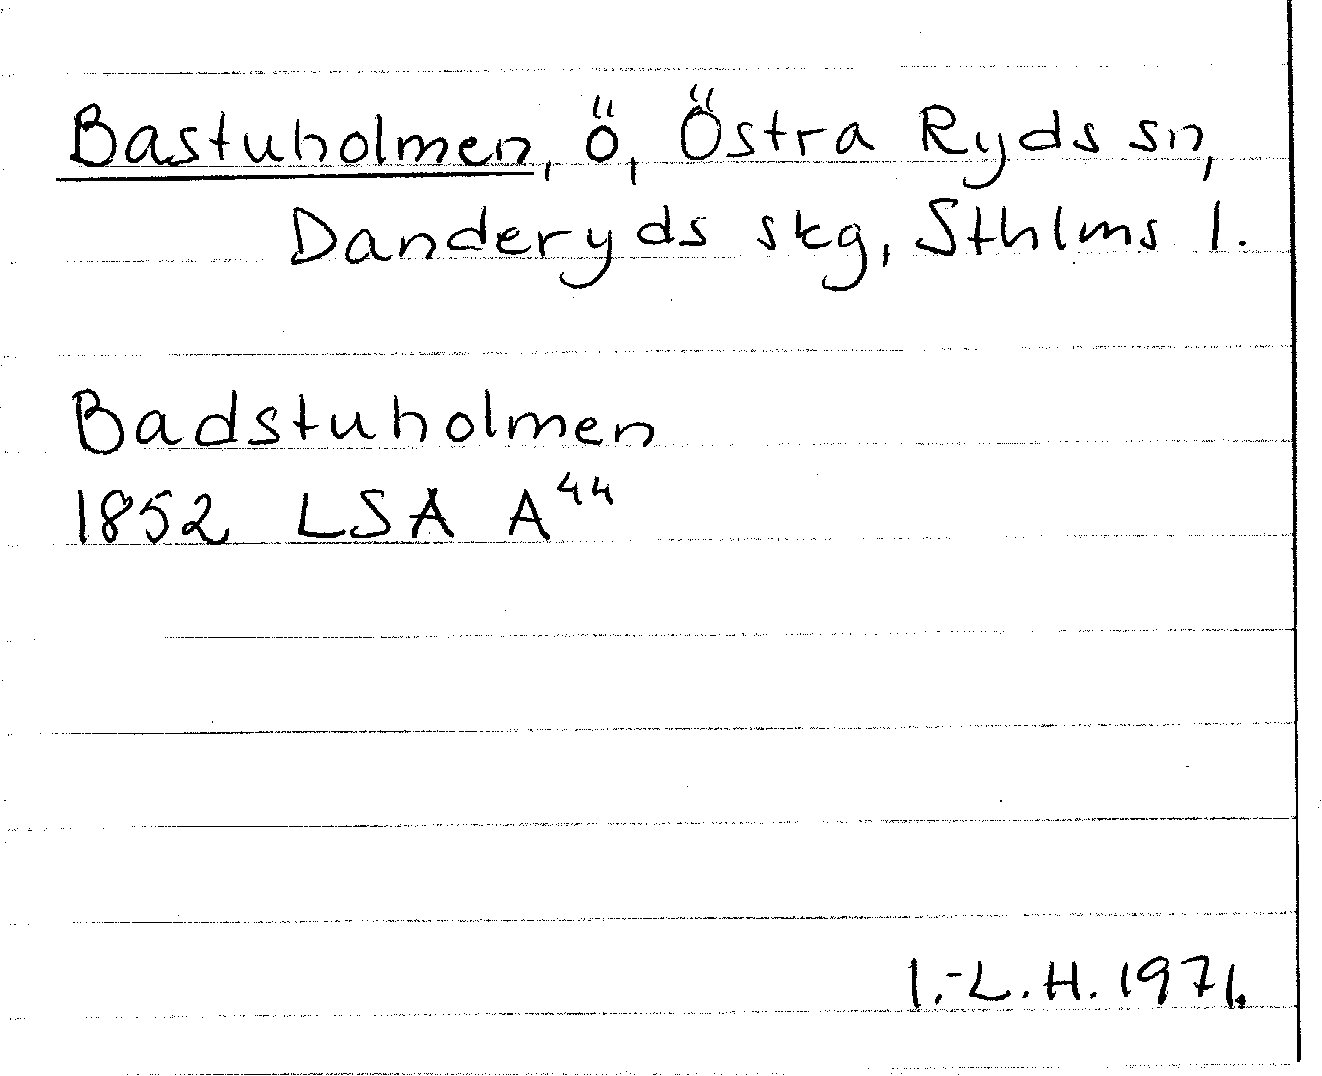 Bastuholmen, ö, Östra Ryds sn,
Danderyds skg, Sthlms l.
Badstuholmen
1852 LSA A⁴⁴
I.-L.H. 1971.